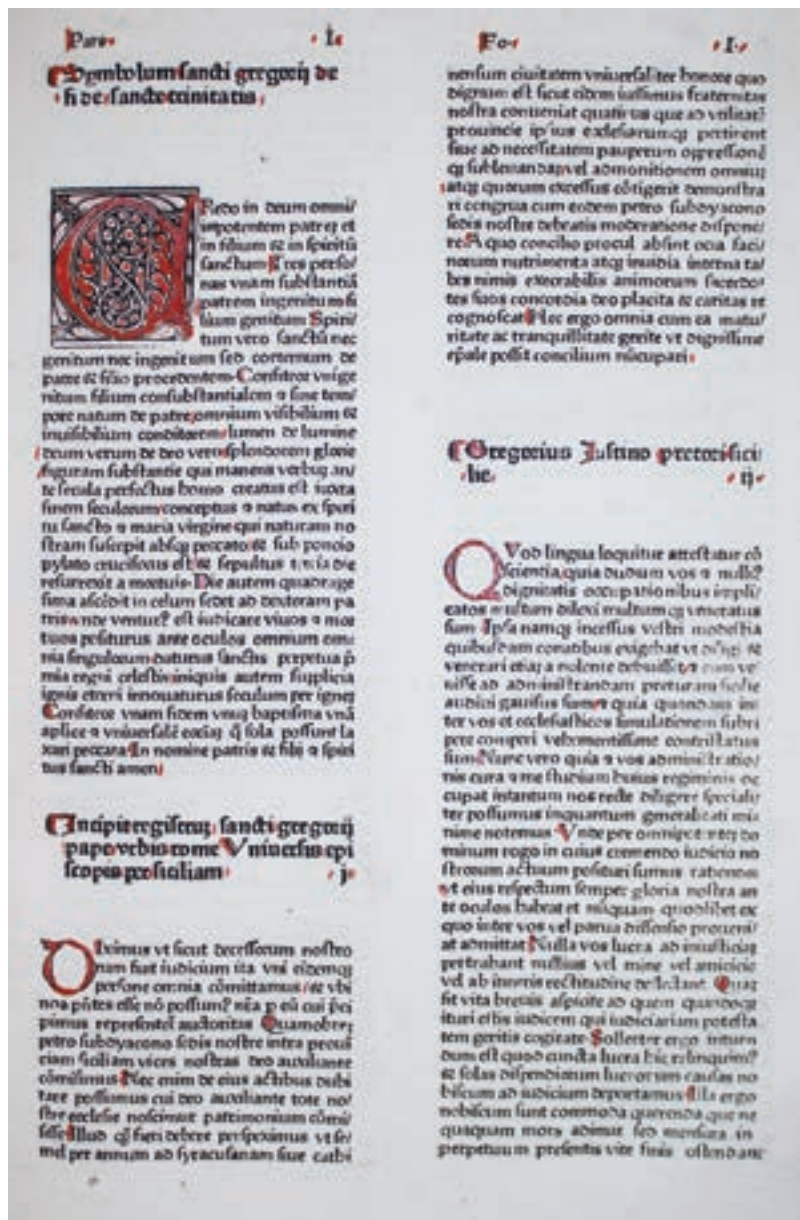 Pars I
Symbolum sancti gregorij de
fi de sancte trinitatis
Redo in deum omni
ipotentem patrez et
in filium et in spiritū
sanctum Tres perso
nas vnam substantiā
patrem ingenitum fi
lium genitum Spiri
tum vero sanctū nec
genitum nec ingenitum sed coeternum de
patre et filio procedentem Confiteor vnige
nitum filium consubstantialem et sine tem
pore natum de patre omnium visibilium et
inuisibilium conditorem lumen de lumine
deum verum de deo vero splendorem glorie
figuram substantie qui manens verbuz an
te secula perfectus homo creatus est iuxta
finem seculorum conceptus et natus ex spiri
tu sancto et maria virgine qui naturam no
stram suscepit absqz peccato et sub poncio
pylato crucifixus est et sepultus tercia die
resurrexit a mortuis Die autem quadrage
sima ascēdit in celum sedet ad dexteram pa
tris vnde ventur9 est iudicare viuos et mor
tuos positurus ante oculos omnium om
nia singulorum daturus sanctis perpetua p̄
mia regni celestis iniquis autem supplicia
ignis eterni innouaturus seculum per ignez
Confiteor vnam fidem vnuz baptisma vnā
aplice et vniuersalē eccīaz q̄ sola possunt la
xari peccata In nomine patris et filij et spiri
tus sancti amen
Incipit registruz sancti gregorij
pape vrbis rome Vniuersis epi
scopis per siciliam j
Diximus vt sicut decessorum nostro
rum fiat iudicium ita vni eidemqz
persone omnia cōmittamus et vbi
nos p̄ntes esse nō possum9 nr̄a p eū cui p̄ci
pimus representet auctoritas Quamobrez
petro subdyacono sedis nostre intra prouī
ciam siciliam vices nostras deo auxiliante
cōmisimus Nec enim de eius actibus dubi
tare possumus cui deo auxiliante tote no
stre ecclesie noscimur patrimonium cōmi
sisse Illud q̄ fieri debere perspeximus vt se
mel per annum ad syracusanam siue cathi
Fo I
nensium ciuitatem vniuersaliter honore quo
dignum est sicut eidem iussimus fraternitas
nostra conueniat quatinus que ad vtilitatē
prouincie ipsius ecclesiarumqz pertinent
siue ad necessitatem pauperum oppressorū
qz subleuandam vel admonitionem omniuz
atqz quorum excessus cōtigerit demonstra
ri congrua cum eodem petro subdyacono
sedis nostre debeatis moderatione dispone
re A quo concilio procul absint odia faci
norum nutrimenta atqz inuidia interna ta
bes nimis execrabilis animorum sacerdo
tes suos concordia deo placita et caritas re
cognoscat Hec ergo omnia cum ea matu
ritate ac tranquillitate gerite vt dignissime
ep̄ale possit concilium nūcupari
Gregorius Justino pretori sici
lie ij
Quod lingua loquitur attestatur cō
scientia quia dudum vos et null9
dignitatis occupationibus impli
catos multum dilexi multumqz veneratus
sum Ipsa namqz incessus vestri modestia
quibusdam conatibus exigebat vt diligi et
venerari etiaz a nolente debuisset et cum ve
nisse ad administrandam preturam sicilie
audiui gauisus sum et quia quandam in
ter vos et ecclesiasticos simulationem subri
pere comperi vehementissime contristatus
sum Nunc vero quia et vos administratio
nis cura et me studium huius regiminis oc
cupat intantum nos recte diligere speciali
ter possumus inquantum generalitati mi
nime nocemus Vnde per omnipotentem do
minum rogo in cuius tremendo iudicio no
strorum actuum posituri sumus rationem
vt eius respectum semper gloria nostra an
te oculos habeat et nūquam quodlibet ex
quo inter vos vel parua dissensio proueni
at admittat Nulla vos lucra ad iniusticiaz
pertrahant nullius vel mine vel amicicie
vel ab itineris rectitudine deflectant Quaz
sit vita breuis aspicite ad quem quandoqz
ituri estis iudicem qui iudiciariam potesta
tem geritis cogitate Sollerter ergo intuen
dum est quod cuncta lucra hic relinquim9
et solas dispendiorum lucrorum causas no
biscum ad iudicium deportamus Illa ergo
nobiscum sunt commoda querenda que ne
quaquam mors adimat sed mensura in
perpetuum presentis vite finis ostendat